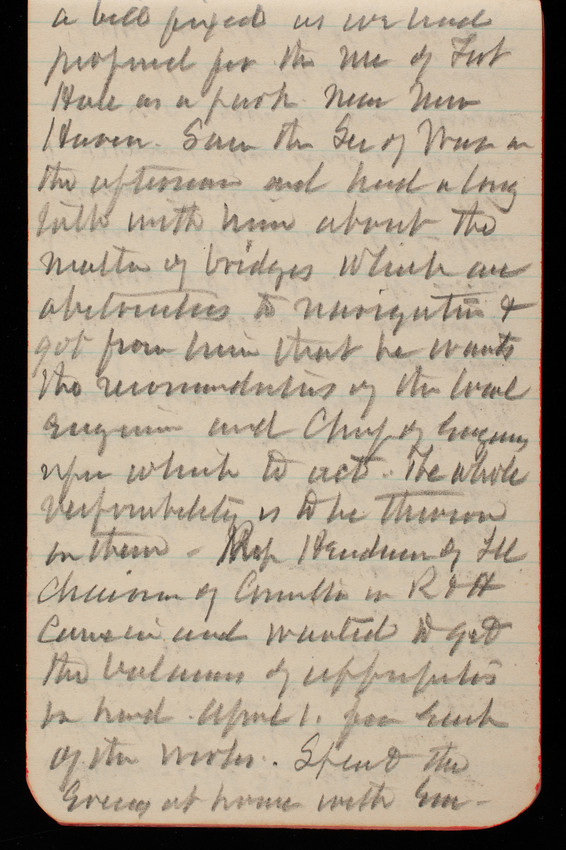 a bill fixed as we had
proposed for the use of Fort
Hale as a park near New
Haven. Saw the Sec of War in
the afternoon and had a long
talk with him about the
matter of bridges which are
obstructions to navigation &
got from him that he wants
the recommendations of the local
Engineer and Chief of Engineers
upon which to act. The whole
responsibility is to be thrown
on them - Rep Henderson of Ill
Chairman of Committee on R & H
came in and wanted to get
the balances of appropriations
on hand April 1. for each
of the works. Spent the
Evening at home with Em-